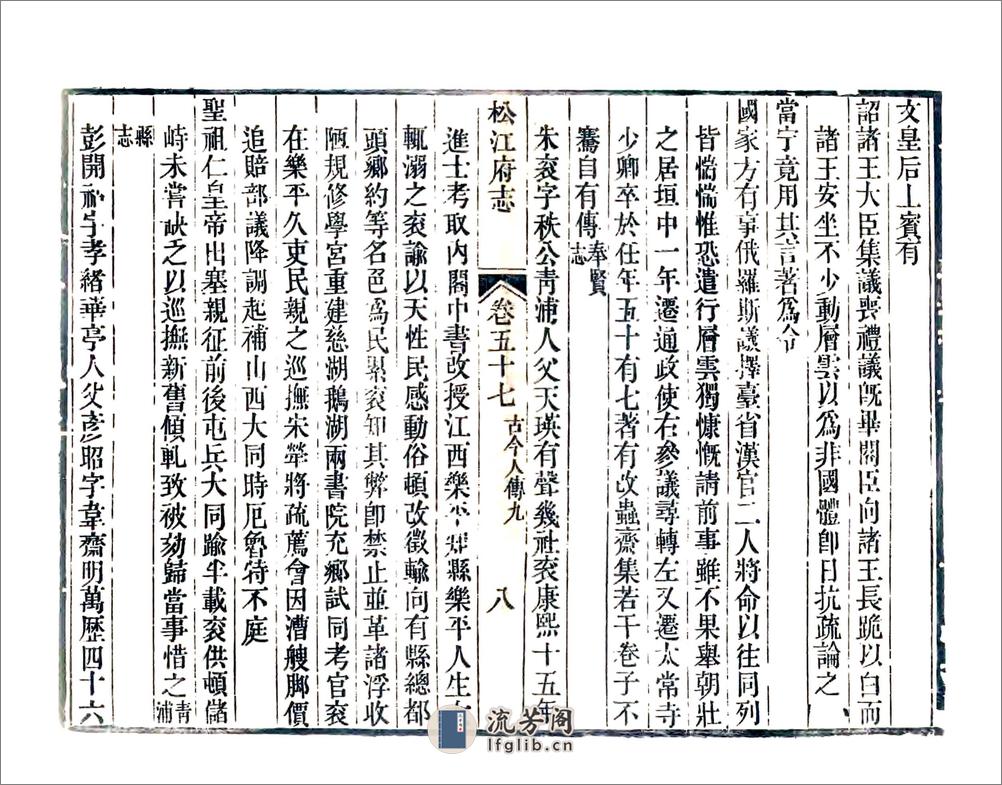 文皇后上賓有
詔諸王大臣集議喪禮議旣畢閣臣向諸王長跪以白而
諸王安坐不少動層雲以爲非國體卽日抗疏論之
當宁竟用其言著爲令
國家方有事俄羅斯議擇臺省漢官二人將命以往同列
皆惴惴惟恐遣行層雲獨慷慨請前事雖不果舉朝壯
之居垣中一年遷通政使右參議尋轉左又遷太常寺
少卿卒於任年五十有七著有改蟲齋集若干卷子不
騫自有傳奉賢志
朱袞字秩公靑浦人父天瑛有聲幾社袞康熙十五年
松江府志 卷五十七 古今人傳九 八
進士考取內閣中書改授江西樂平縣樂平人生女
輒溺之袞諭以天性民感動俗頓改徵輸向有縣總都
頭鄉約等名色爲民累袞知其弊卽禁止並革諸浮收
陋規修學宮重建慈湖鵝湖兩書院充鄉試同考官袞
在樂平久吏民親之巡撫宋犖將疏薦會因漕艘脚價
追賠部議降調起補山西大同時厄魯特不庭
聖祖仁皇帝出塞親征前後屯兵大同踰半載袞供頓儲
峙未嘗缺乏以巡撫新舊傾軋致被劾歸當事惜之靑浦
縣志
彭開祐字孝緒華亭人父彥昭字韋齋明萬歷四十六
流芳阁
lfglib.cn